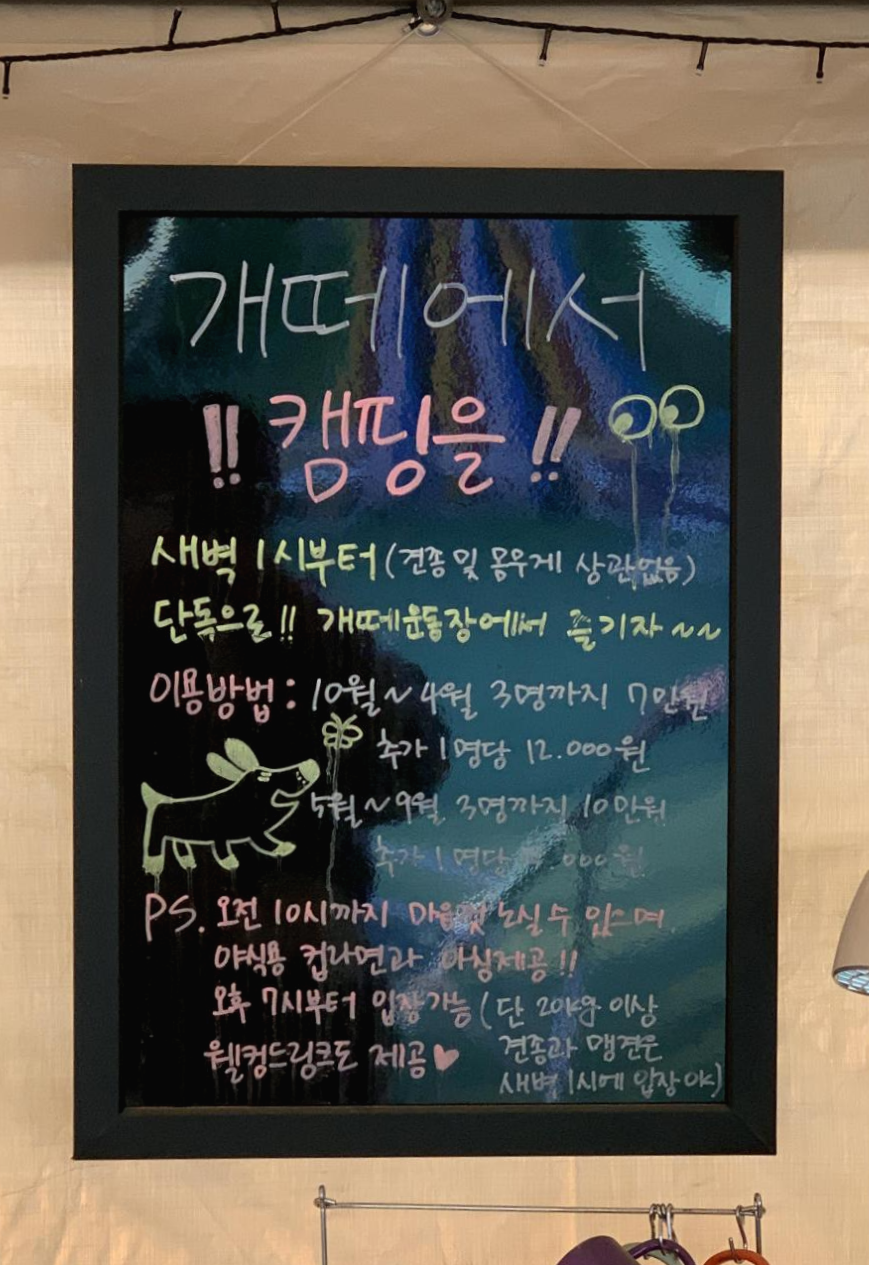 개떼에서
!! 캠핑을 !!
새벽 1시부터 (견종 및 몸무게 상관없음)
단독으로!! 개떼운동장에서 즐기자~~
이용방법 : 10월~4월 3명까지 7만원
추가 1명당 12.000원
5월~9월 3명까지 10만원
추가 1명당 000원
PS. 오전 10시까지 마음껏 노실수 있으며
야식용 컵라면과 아침제공!!
오후 7시부터 입장가능 (단 이상
웰컴드링크도 제공♥ 견종과 맹견은
새벽 1시에 입장